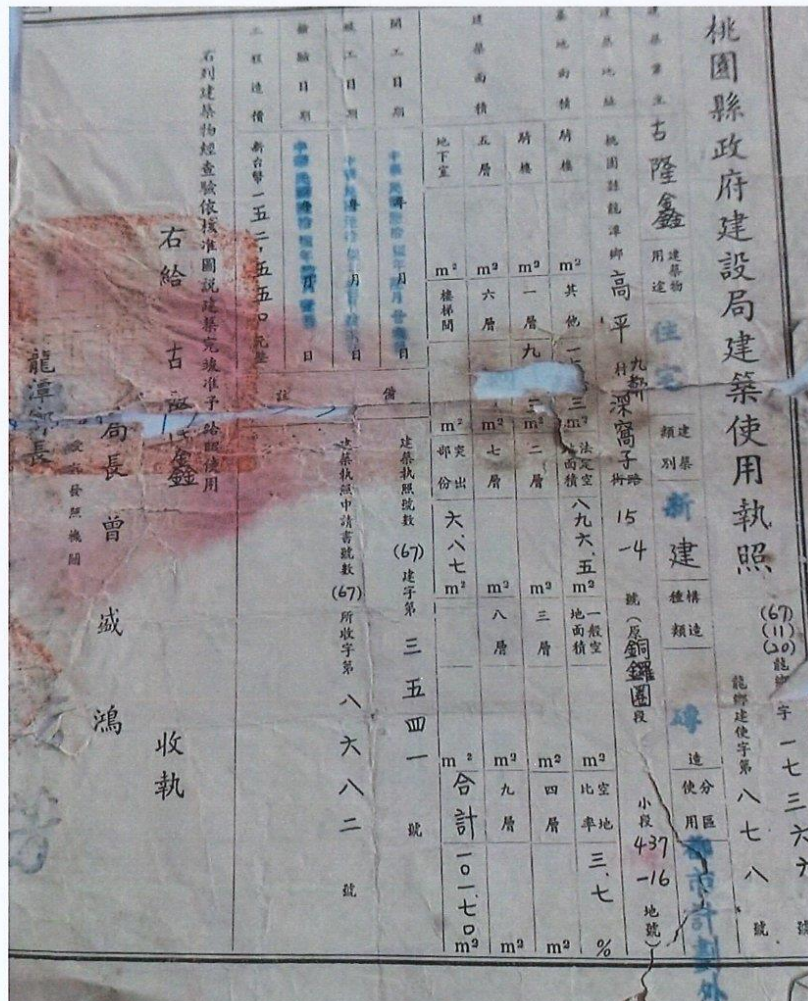 桃園縣政府建設局建築使用執照
(67)(11)(20)龍鄉 字 一七三六六 號
龍鄉建使字第 八七八 號
建築業主 古隆鑫 建築物用途 住宅 建築類別 新建 構造種類 磚造 使用分區 都市計劃外
建築地址 桃園縣龍潭鄉高平村九鄰深窩子路街15-4號(原銅鑼圈段 小段437-16地號)
基地面積 騎樓 m² 其他 m² 法定空地面積 八九六.五 m² 一般空地面積 m² 空地比率 三.七 %
建築面積 騎樓 m² 一層 九 m² 二層 m² 三層 m² 四層 m²
五層 m² 六層 m² 七層 m² 八層 m² 九層 m²
地下室 m² 樓梯間 m² 突出部份 六.八七 m² 合計 一〇一.七〇 m²
開工日期 中華民國 年 月 日
竣工日期 中華民國 年 月 日
檢驗日期 中華民國 年 月 日
工程造價 新台幣一五二,五五〇元整
備註
建築執照號數 (67) 建字第 三五四一 號
建築執照申請書號數 (67) 所收字第 八六八二 號
右列建築物經查驗依核准圖說建築完竣准予給照使用
右給 古隆鑫 收執
局長 曾 鴻
龍潭鄉長
發照機關